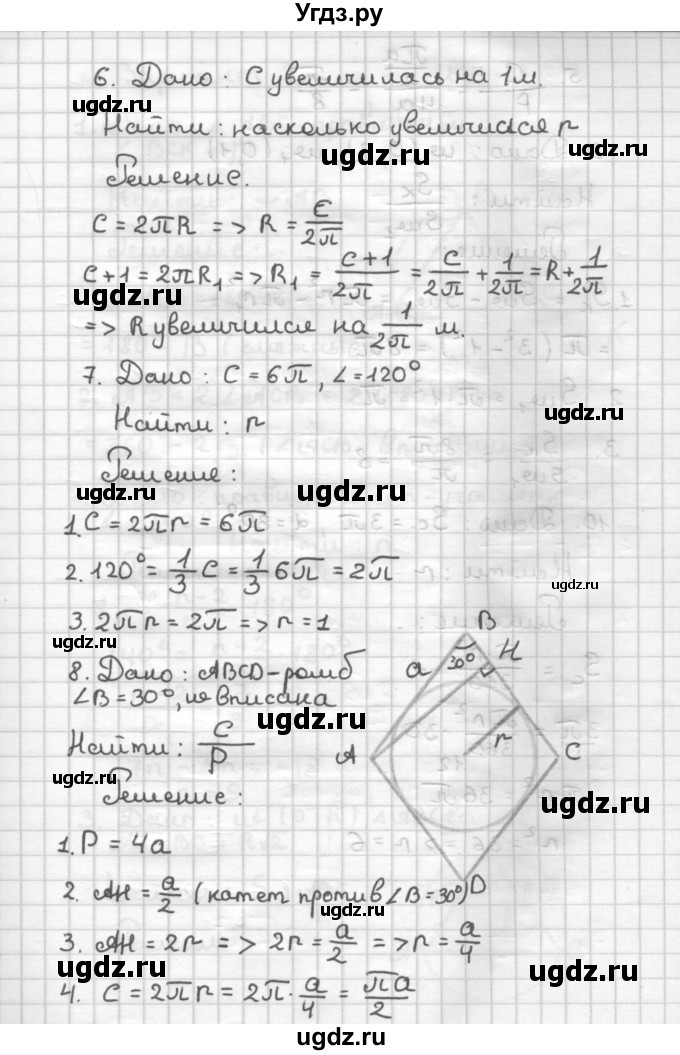 Угдз.ру
6. Дано: С увеличилась на 1м.
ugdz.ru
ugdz.ru
Найти: насколько увеличился r
ugdz.ru
ugdz.ru
Решение.
C = 2πR => R = C/2π
C+1 = 2πR₁ => R₁ = (C+1)/2π = C/2π + 1/2π = R + 1/2π
ugdz.ru
ugdz.ru
=> R увеличился на 1/2π м.
7. Дано: C = 6π, ∠ = 120°
Найти: r
ugdz.ru
ugdz.ru
Решение:
ugdz.ru
ugdz.ru
1. C = 2πr = 6π
2. 120° = 1/3 C = 1/3 6π = 2π
ugdz.ru
3. 2πr = 2π => r = 1
ugdz.ru
B
8. Дано: ABCD - ромб
a 30° H
∠B = 30°, ωr вписана
ugdz.ru
Найти: C/P
A r C
ugdz.ru
Решение:
ugdz.ru
1. P = 4a
ugdz.ru
2. AH = a/2 (катет против ∠B = 30°)
D
ugdz.ru
3. AH = 2r => 2r = a/2 => r = a/4
ugdz.ru
ugdz.ru
4. C = 2πr = 2π · a/4 = πa/2
ugdz.ru